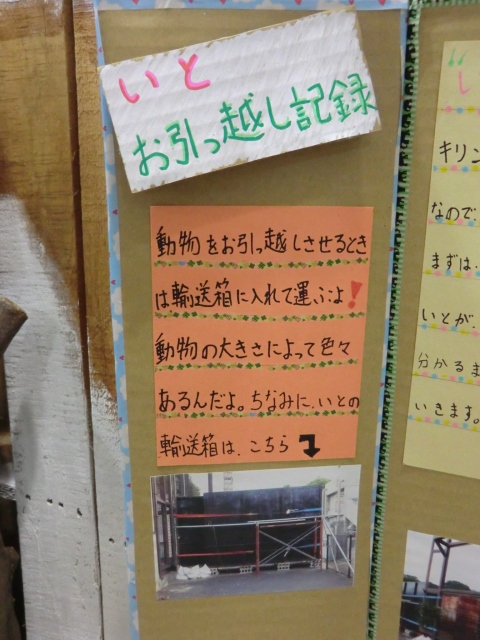 いと
お引っ越し記録
動物をお引っ越しさせるとき
は輸送箱に入れて運ぶよ!
動物の大きさによって色々
あるんだよ。ちなみに、いとの
輸送箱は、こちら
キリン
なので、
まずは、
いとが、
分かるま
いきます。